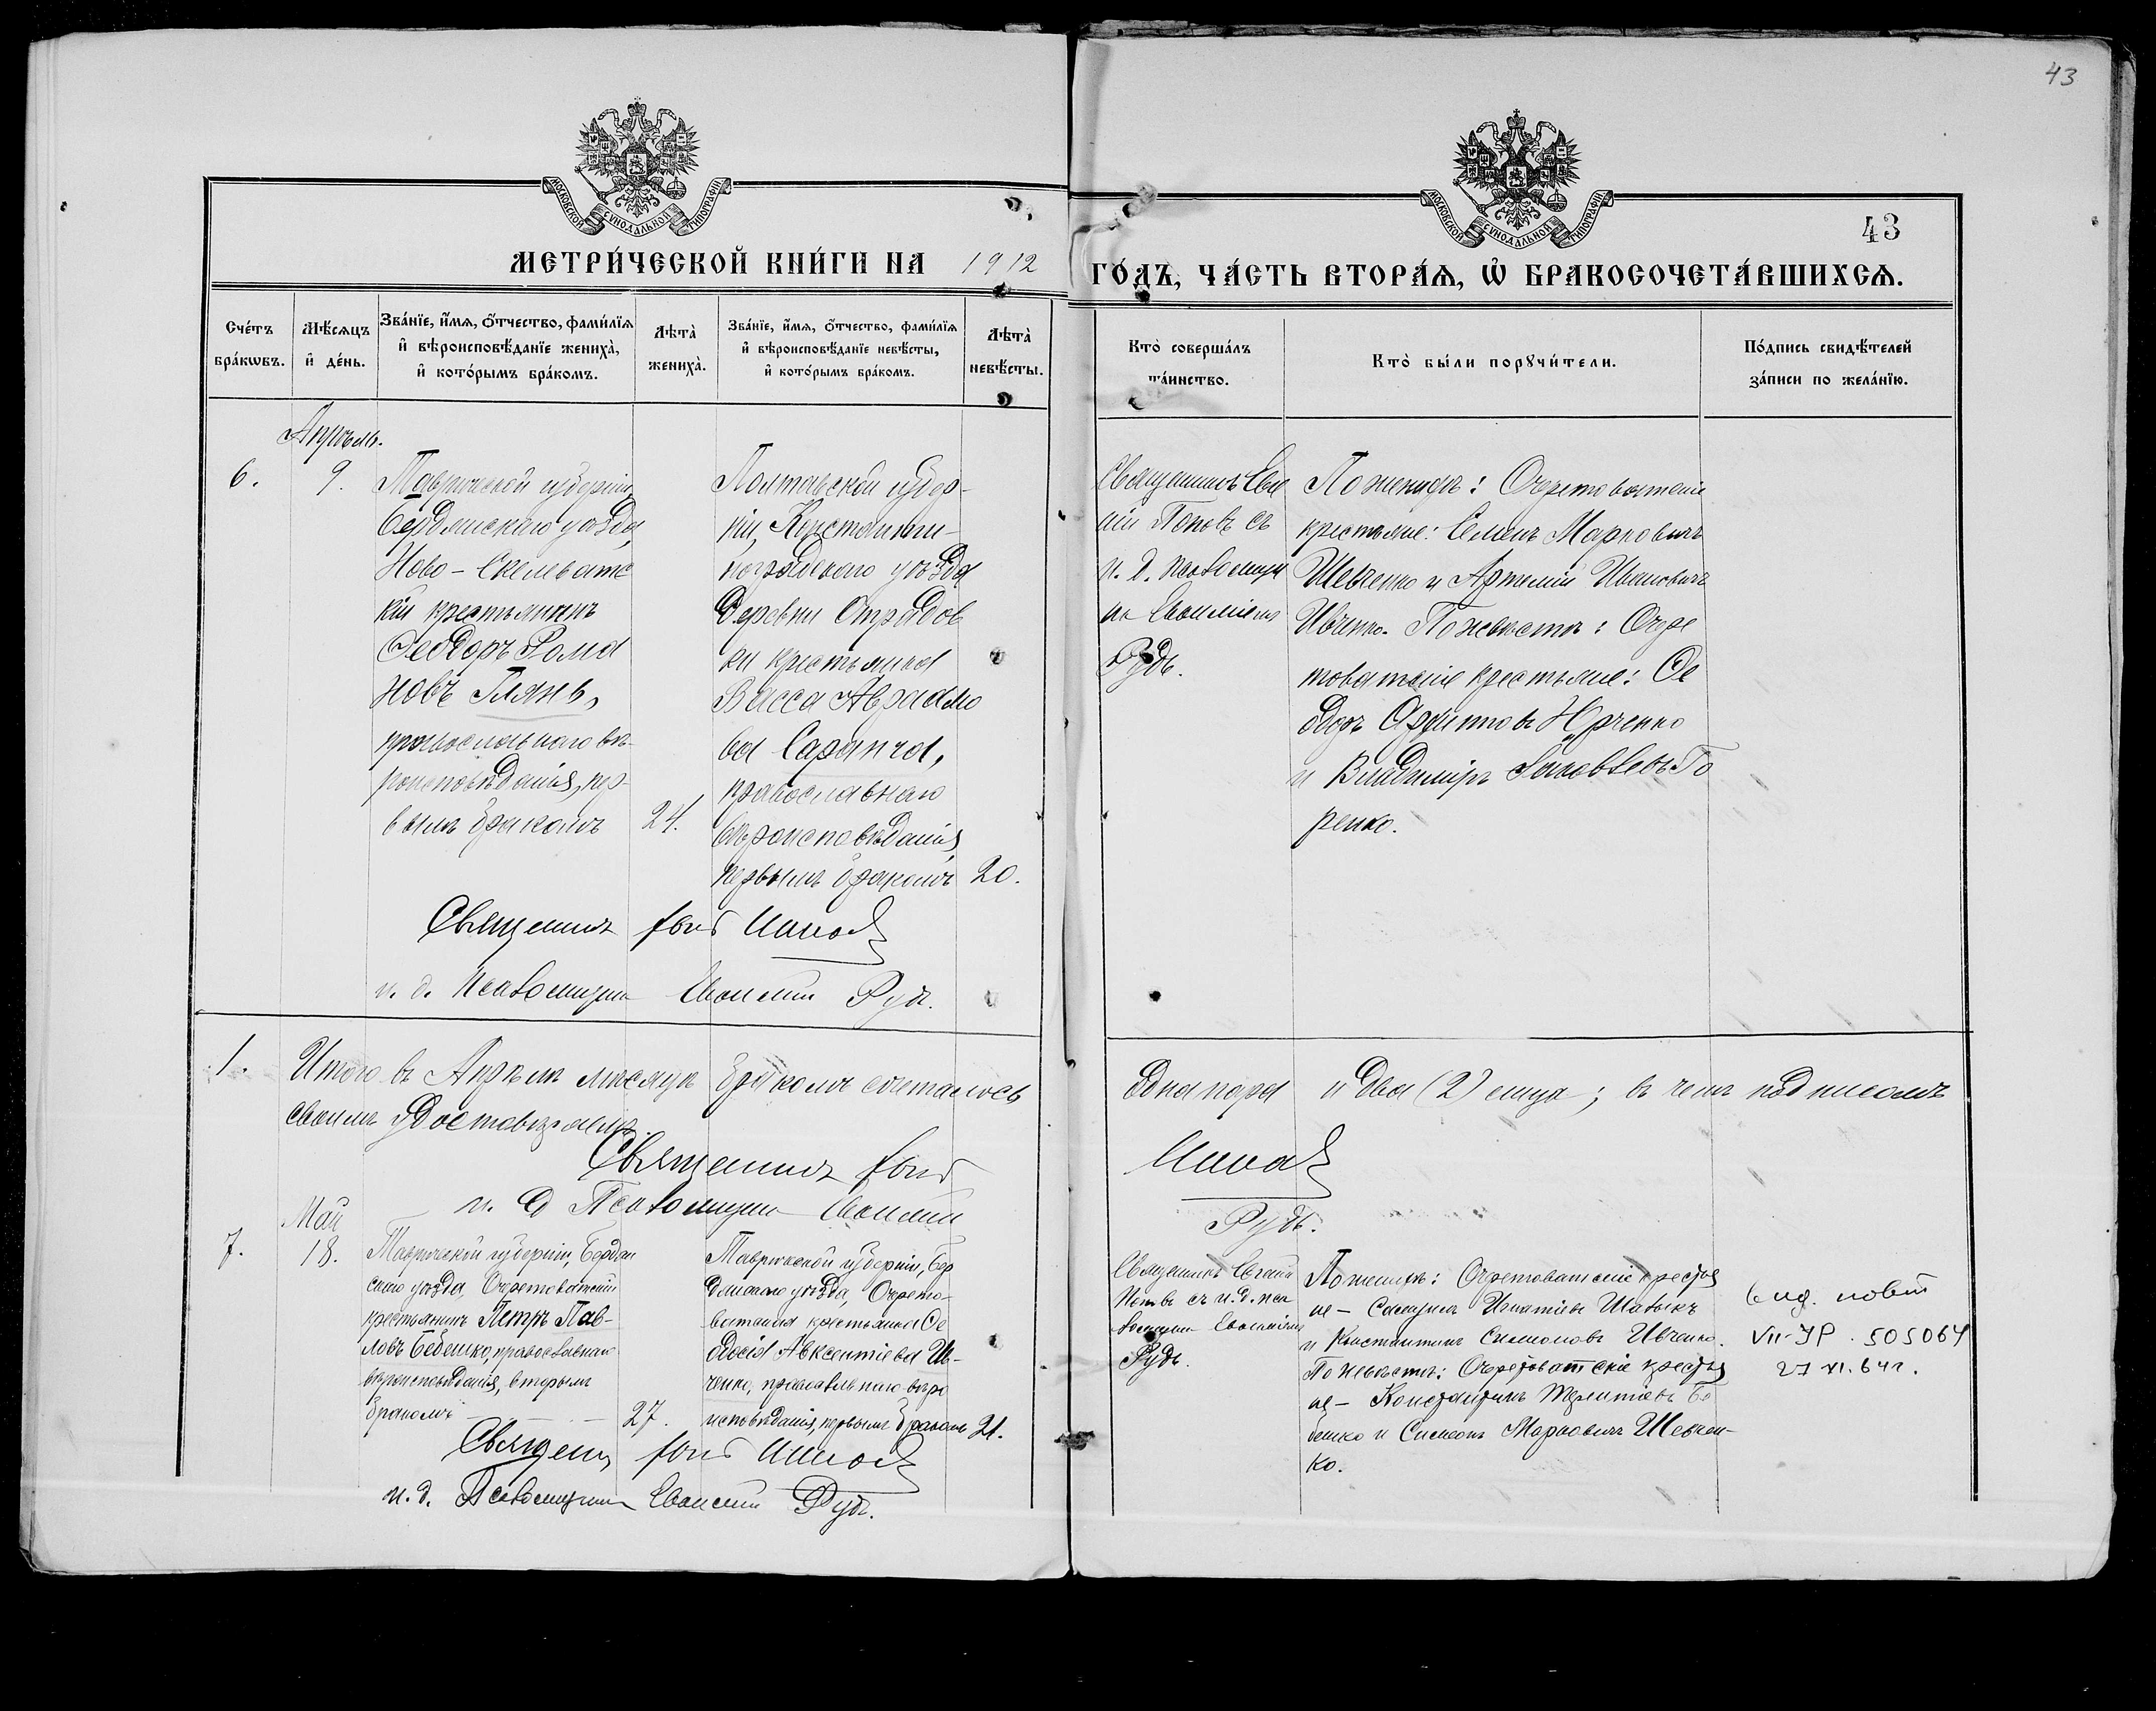 43
МОСКОВСКОЙ СѴНОДАЛЬНОЙ ТИПОГРАФІИ
МОСКОВСКОЙ СѴНОДАЛЬНОЙ ТИПОГРАФІИ
43
МЕТРИ́ЧЕСКОЙ КНИ́ГИ НА 1912
ГО́ДЪ, ЧА́СТЬ ВТОРА́Ѧ, Ѽ БРАКОСОЧЕТА́ВШИХСѦ.
Сче́тъ бра́кѡвъ.
Мѣ́сяцъ и҆ де́нь.
Зва́нїе, и҆́мѧ, ѻ҆́тчество, фами́лїѧ
и҆ вѣроисповѣ́данїе жениха̀,
и҆ кото́рымъ бра́комъ.
Лѣта̀ жениха̀.
Зва́нїе, и҆́мѧ, ѻ҆́тчество, фами́лїѧ
и҆ вѣроисповѣ́данїе невѣ́сты,
и҆ кото́рымъ бра́комъ.
Лѣта̀ невѣ́сты.
Кто̀ соверша́лъ та́инство.
Кто̀ бы́ли порꙋчи́тели.
По́дпись свидѣ́телей
за́писи по жела́нїю.
Апрѣль.
6.
9.
Таврической губерніи,
Бердянскаго уѣзда,
Ново-Скелеватс
кій крестьянинъ
Ѳеодоръ Рома
новъ Глянь,
православнаго вѣ-
роисповѣданія, пер-
вымъ бракомъ
24.
Полтавской губер-
ніи, Константи-
ноградскаго уѣзда
деревни Отрадов
ки крестьянка
Васса Авраамо
ва Саранча,
православнаго
вѣроисповѣданія,
первымъ бракомъ
20.
Священникъ
Поповъ съ
и. д. псаломщи
ка Евсиміемъ
Рудь.
По женихѣ: Очеретоватскіе
крестьяне: Семенъ Марковичъ
Шевченко и Артемій Ивановичъ
Ивченко. По невѣстѣ: Очере
товатскіе крестьяне: Ѳе
одоръ Юрченко
и Владиміръ Яковлевъ Го
ренко.
Священникъ
и. д. псаломщика Рудь.
1.
Итого въ Апрѣлѣ мѣсяцѣ бракомъ сочеталось
одна пара и два (2) лица; въ чемъ подписомъ
своимъ удостовѣряемъ.
Священникъ
и. д. Псаломщика
Рудь.
Май
7.
18.
Таврической губерніи, Бердян
скаго уѣзда, Очеретоватскій
крестьянинъ Петръ Пав-
ловъ Бебешко, православнаго
вѣроисповѣданія, вторымъ
бракомъ
27.
Таврической губерніи, Бер
дянскаго уѣзда, Очерето-
ватская крестьянка Ѳе
одосія Авксентіева Ив-
ченко, православнаго вѣро
исповѣданія, первымъ бракомъ
21.
Священникъ
Поповъ съ и. д. пса
ломщика
Рудь.
По женихѣ: Очеретоватскіе крестья
не – Игнатіевъ
и Константинъ Симоновъ Ивченко.
По невѣстѣ: Очеретоватскіе крестья
не – Константинъ Терентіевъ Бе
бешко и Симеонъ Марковичъ Шевчен-
ко.
505064
27 VI. 64 г.
Священ
и. д. Псаломщика Рудь.